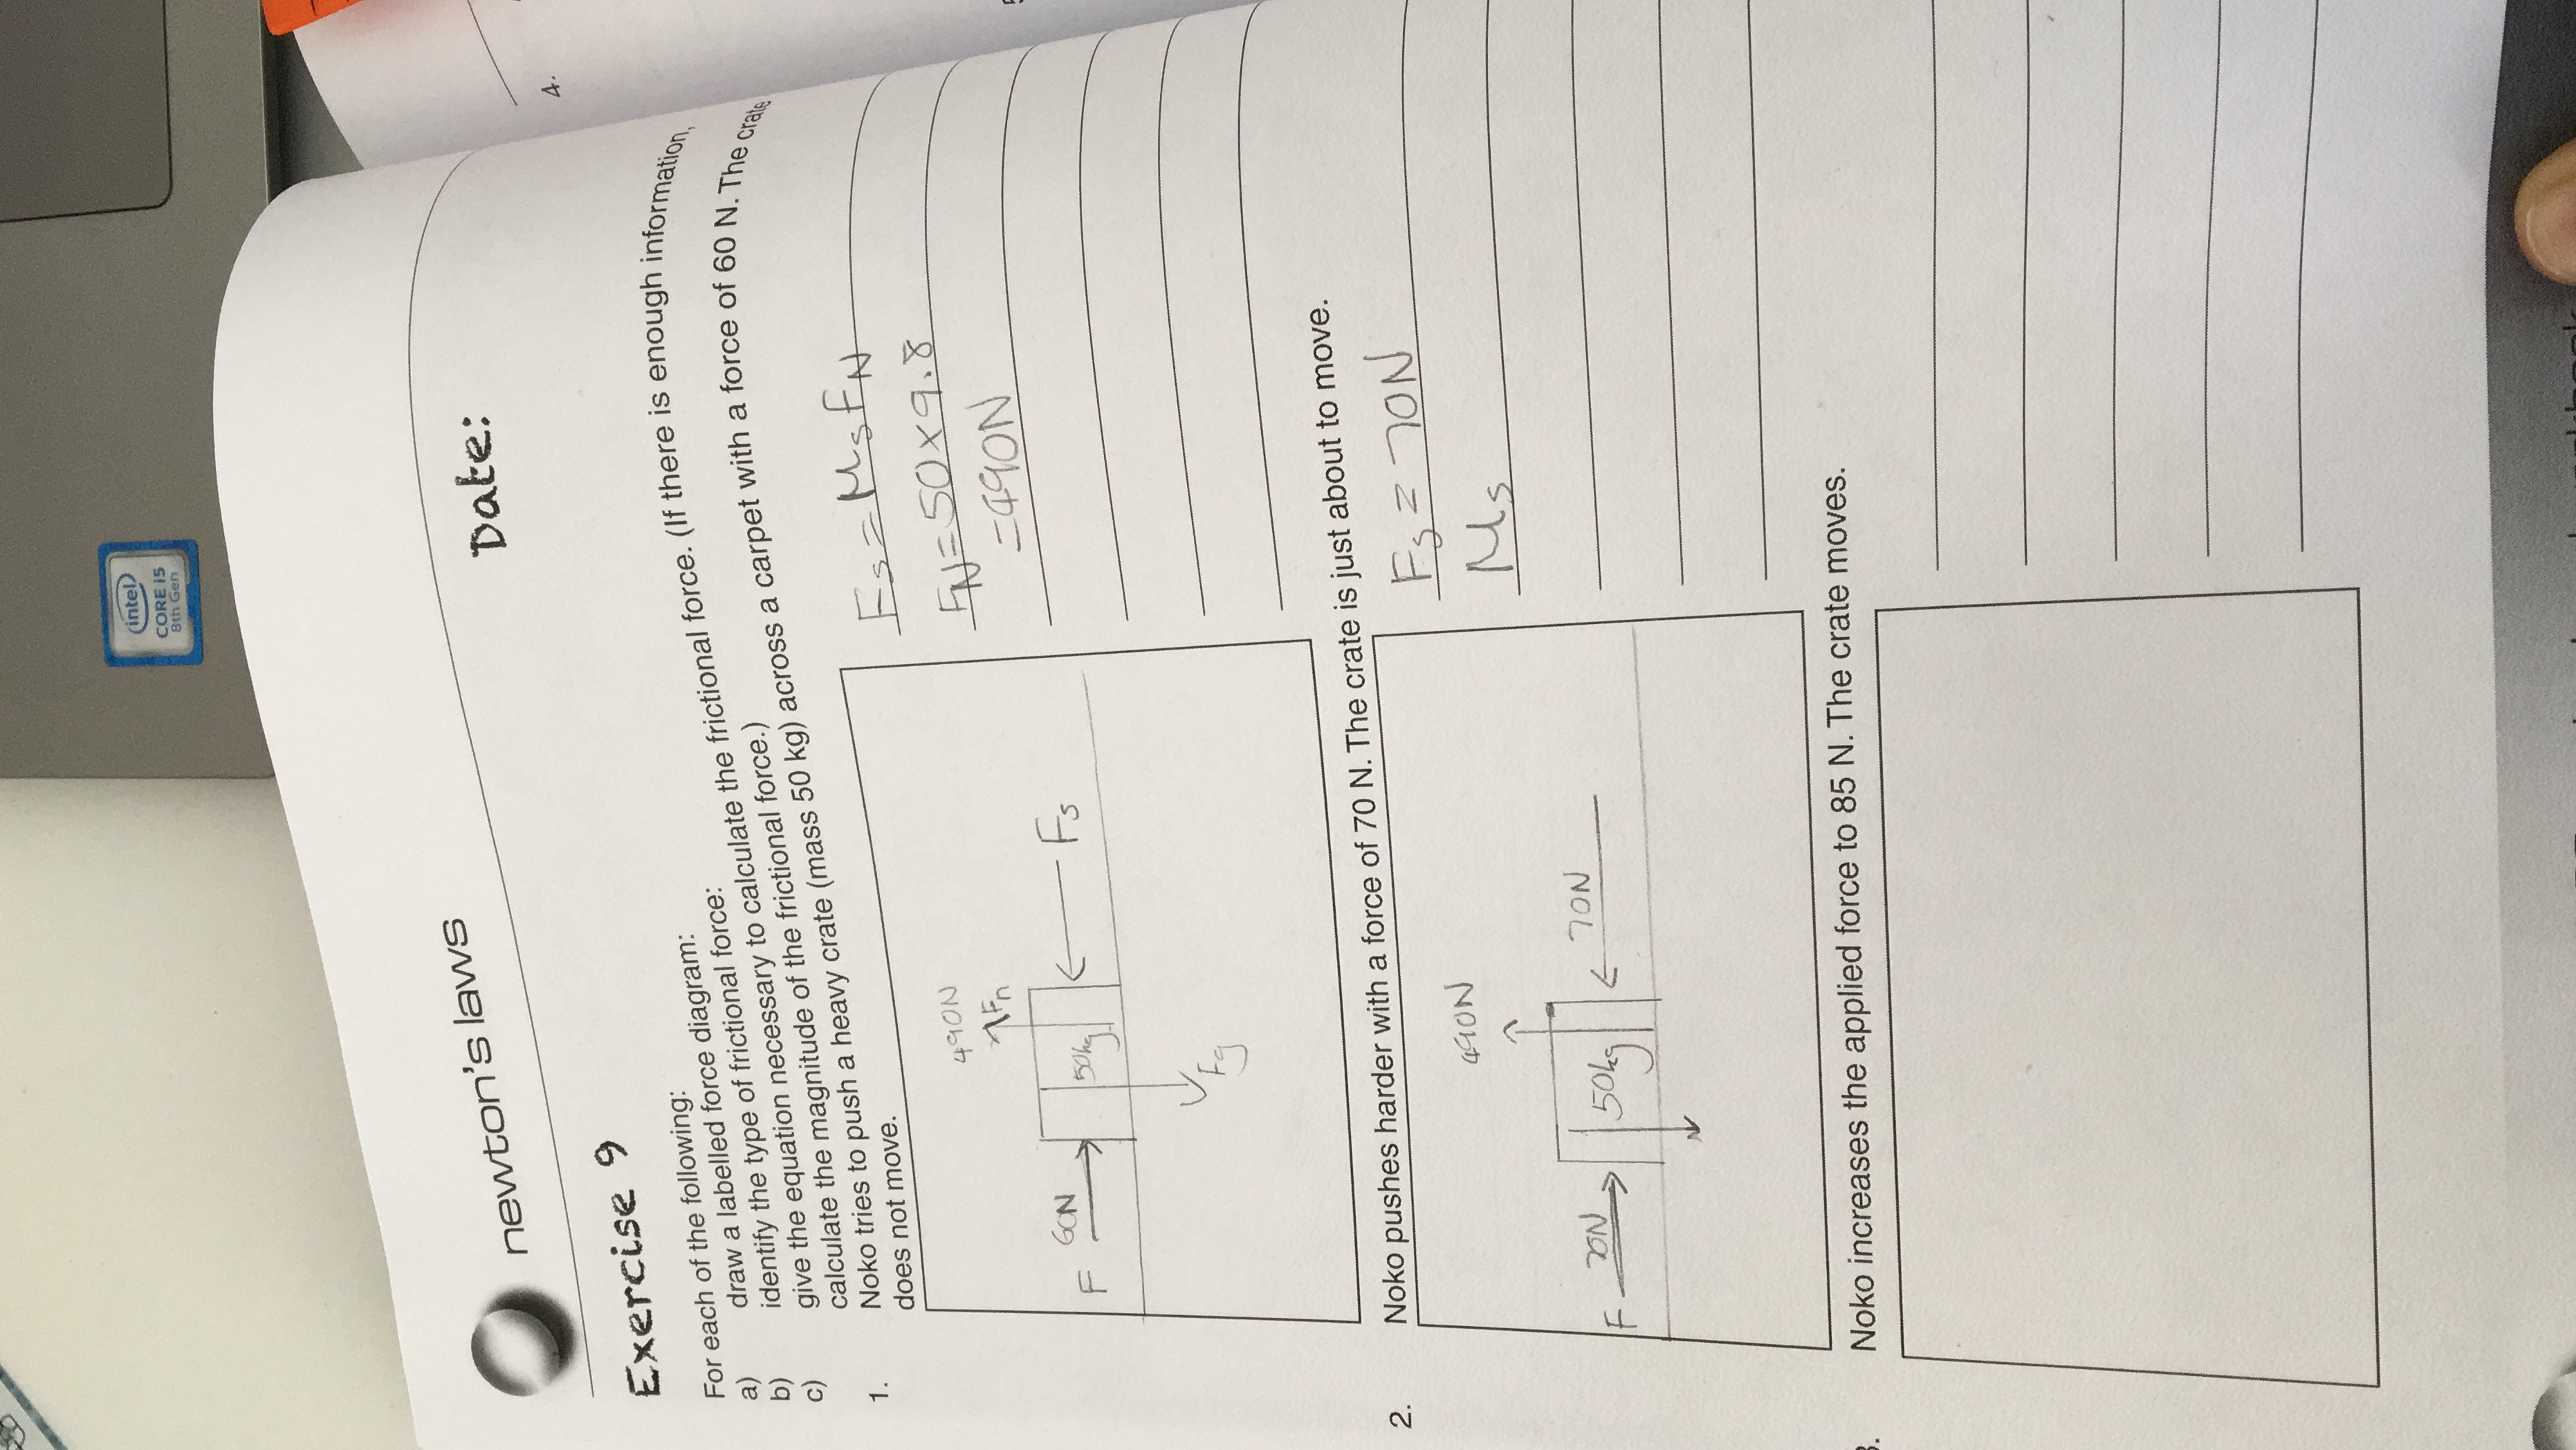 intel
CORE i5
8th Gen
newton's laws
Date:
4.
Exercise 9
For each of the following:
a) draw a labelled force diagram:
b) identify the type of frictional force:
c) give the equation necessary to calculate the frictional force. (If there is enough information,
calculate the magnitude of the frictional force.)
1. Noko tries to push a heavy crate (mass 50 kg) across a carpet with a force of 60 N. The crate
does not move.
490N
Fn
F 60N 50kg Fs
Fg
Fs = Ms FN
FN = 50 x 9.8
= 490N
2. Noko pushes harder with a force of 70 N. The crate is just about to move.
490N
F 70N 50kg 70N
Fs = 70N
Ms
Noko increases the applied force to 85 N. The crate moves.